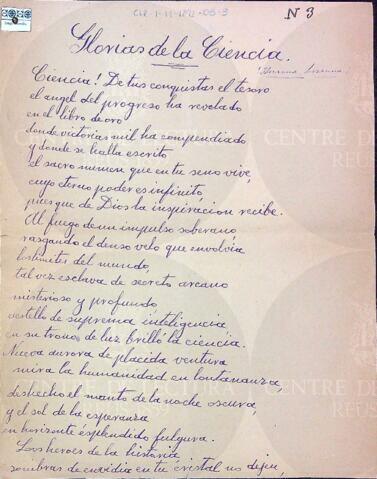 CLR-1-11-1871-03-3
N 3
Glorias de la Ciencia.
Ciencia! De tus conquistas el tesoro
el angel del progreso ha revelado
en el libro de oro
donde victorias mil ha compendiado
y donde se halla escrito
el sacro numen que en tu seno vive,
cuyo eterno poder es infinito,
pues que de Dios la inspiracion recibe.
Al fuego de un impulso soberano,
rasgando el denso velo que envolvia
los limites del mundo,
tal vez esclava de secreto arcano
misterioso y profundo
destello de suprema inteligencia
en su trono de luz brilló la ciencia.
Nueva aurora de placida ventura
mira la humanidad en lontananza,
deshecho el manto de la noche oscura,
y el sol de la esperanza
en horizonte esplendido fulgura.
Los heroes de la historia
sombras de envidia en tu cristal no dejen,
CENTRE DE
REUS
1859
CENTRE DE
REUS
1859